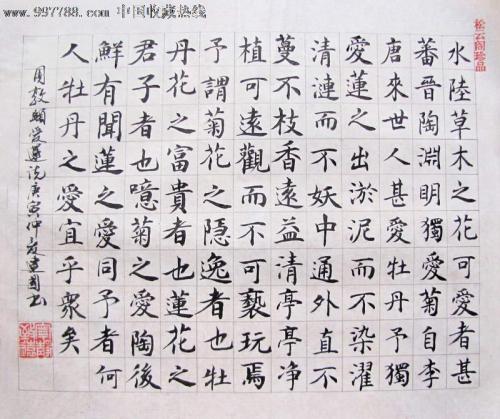 www.997788.com 中国收藏热线
松云阁珍品
水陸草木之花可愛者甚
蕃晉陶淵明獨愛菊自李
唐來世人甚愛牡丹予獨
愛蓮之出淤泥而不染濯
清漣而不妖中通外直不
蔓不枝香遠益清亭亭净
植可遠觀而不可褻玩焉
予謂菊花之隱逸者也牡
丹花之富貴者也蓮花之
君子者也噫菊之愛陶後
鮮有聞蓮之愛同予者何
人牡丹之愛宜乎衆矣
周敦頤愛蓮説庚寅仲夏建國书